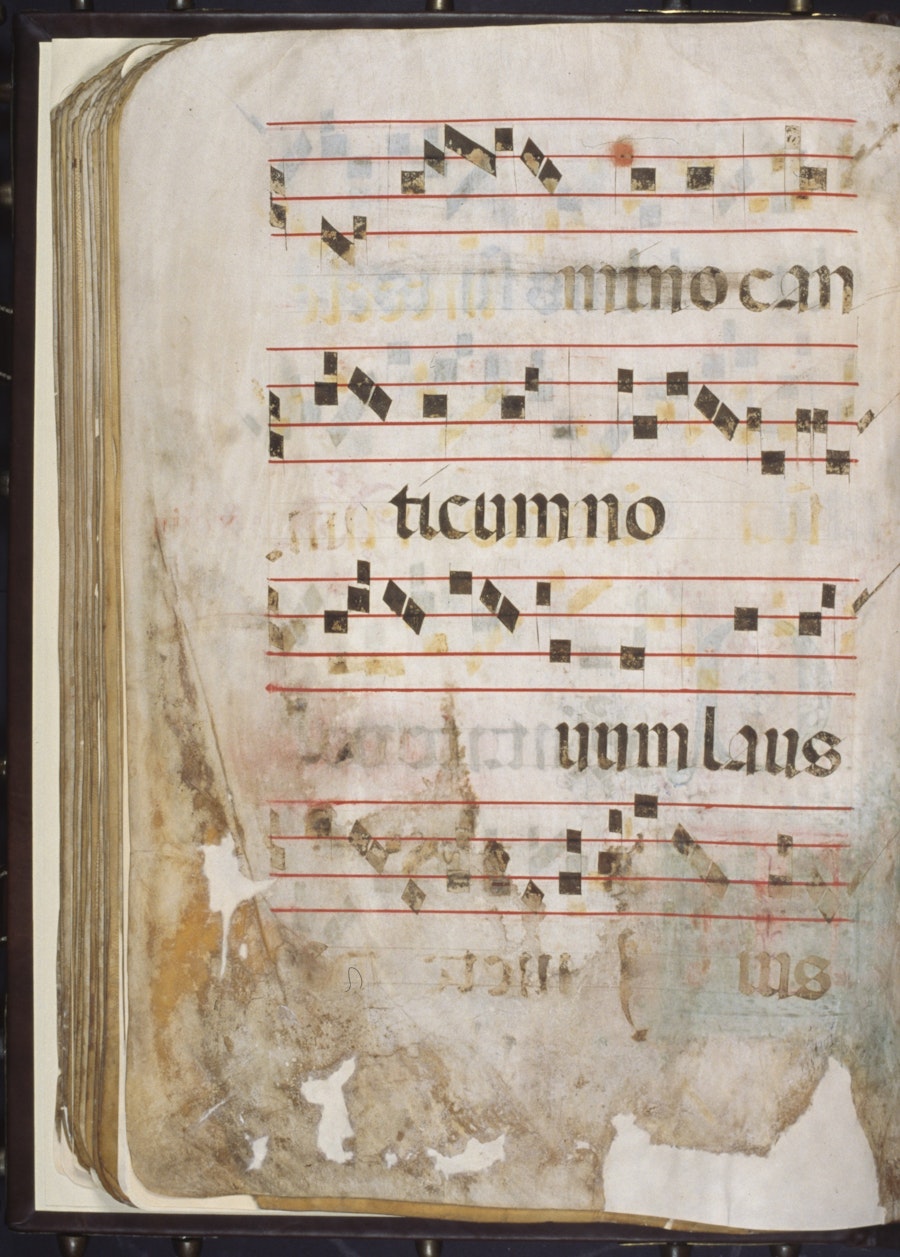 mino can
ticum no
uum laus
ius